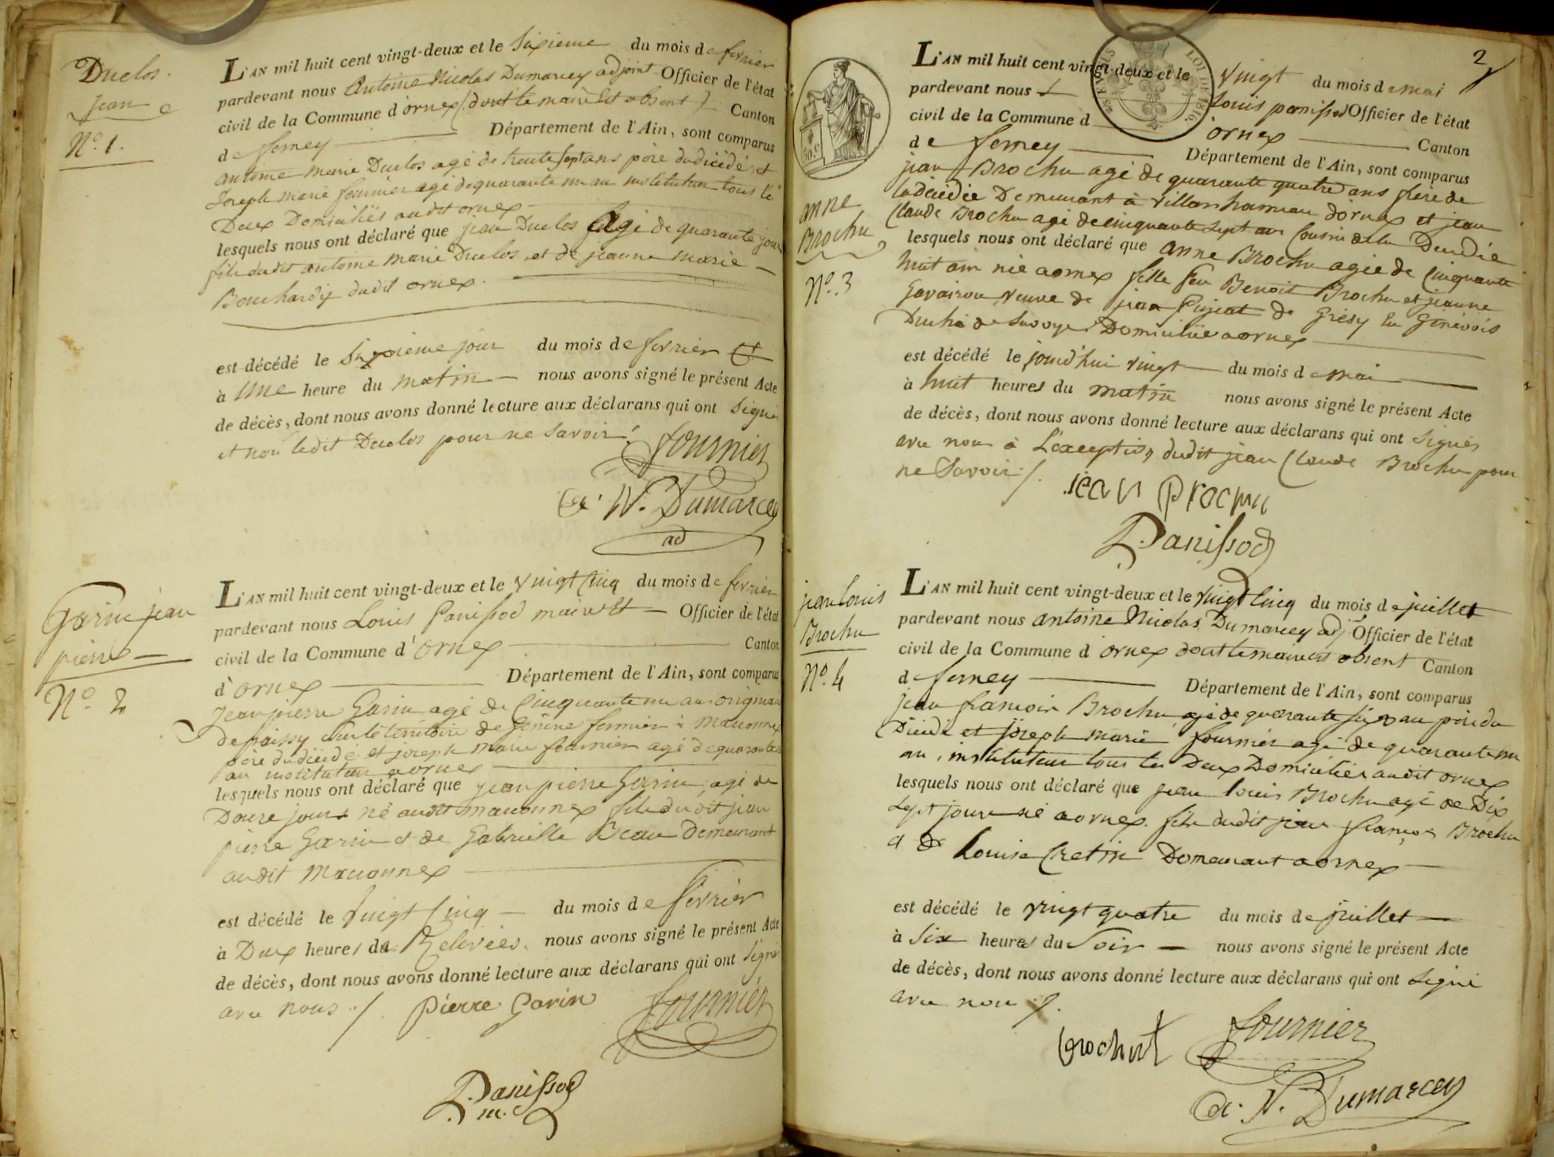 Duclos
jean
N.° 1.
L'AN mil huit cent vingt-deux et le Sixieme du mois de fevrier
pardevant nous Antoine Nicolas Dumarcey adjoint Officier de l'état
civil de la Commune d'ornex (dont le maire est absent) Canton
de ferney Département de l'Ain, sont comparus
antoine marie Duclos agé de trente sept ans père du décédé et
Joseph marie fournier agé de quarante un an instituteur tous les
Deux Domiciliés audit ornex
lesquels nous ont déclaré que jean Duclos agé de quarante jours
fils dudit antoine marie Duclos et de jeanne marie
Bouchardy dudit ornex.
est décédé le Sixieme jour du mois de fevrier
à Une heure du matin nous avons signé le présent Acte
de décès, dont nous avons donné lecture aux déclarans qui ont signé
et non ledit Duclos pour ne Savoir /.
fournier
N. Dumarcey
ad
Garin jean
pierre
N.° 2
L'AN mil huit cent vingt-deux et le vingt Cinq du mois de fevrier
pardevant nous Louis Panissod maire Officier de l'état
civil de la Commune d'ornex Canton
d'ornex Département de l'Ain, sont comparus
Jean pierre Garin agé de Cinquante un ans
fermier à maconnex
père du décédé et joseph marie fournier agé de quarante
un instituteur a ornex
lesquels nous ont déclaré que jean pierre Garin agé de
Douze jours né audit maconnex fils dudit jean
pierre Garin et de Gabrielle Beau Demeurant
audit Maconnex
est décédé le vingt Cinq du mois de fevrier
à Deux heures de Relevées nous avons signé le présent Acte
de décès, dont nous avons donné lecture aux déclarans qui ont Signé
avec nous /. pierre Garin fournier
L. Panissod
m.
2
anne
Brochu
N.° 3
L'AN mil huit cent vingt-deux et le vingt du mois de mai
pardevant nous Louis panissod Officier de l'état
civil de la Commune d ornex Canton
de ferney Département de l'Ain, sont comparus
jean Brochu agé de quarante quatre ans frère de
la décédée Demeurant à Villard hameau d'ornex et jean
Claude Brochu agé de cinquante sept ans Cousin de la Décédée
lesquels nous ont déclaré que anne Brochu agée de Cinquante
huit ans née a ornex fille feu Benoit Brochu et jeanne
veuve de jean de Grésy en Génévois
Duché de Savoye Domiciliée a ornex
est décédé le jourd'hui vingt du mois de mai
à huit heures du matin nous avons signé le présent Acte
de décès, dont nous avons donné lecture aux déclarans qui ont Signés
avec nous à L'exception dudit jean Claude Brochu pour
ne Savoir /.
jean Brochu
L. Panissod
jean Louis
Brochu
N.° 4
L'AN mil huit cent vingt-deux et le Vingt Cinq du mois de juillet
pardevant nous antoine Nicolas Dumarcey adj Officier de l'état
civil de la Commune d ornex dont le maire est absent Canton
de ferney Département de l'Ain, sont comparus
jean francois Brochu agé de quarante six ans père du
Décédé et joseph marie fournier agé de quarante un
an instituteur tous les Deux Domiciliés audit ornex
lesquels nous ont déclaré que jean louis Brochu agé de Dix
Sept jours né a ornex fils dudit jean françois Brochu
et de Louise Cretin Demeurant a ornex
est décédé le vingt quatre du mois de juillet
à Six heures du Soir nous avons signé le présent Acte
de décès, dont nous avons donné lecture aux déclarans qui ont Signé
avec nous /.
Brochu fournier
N. Dumarcey